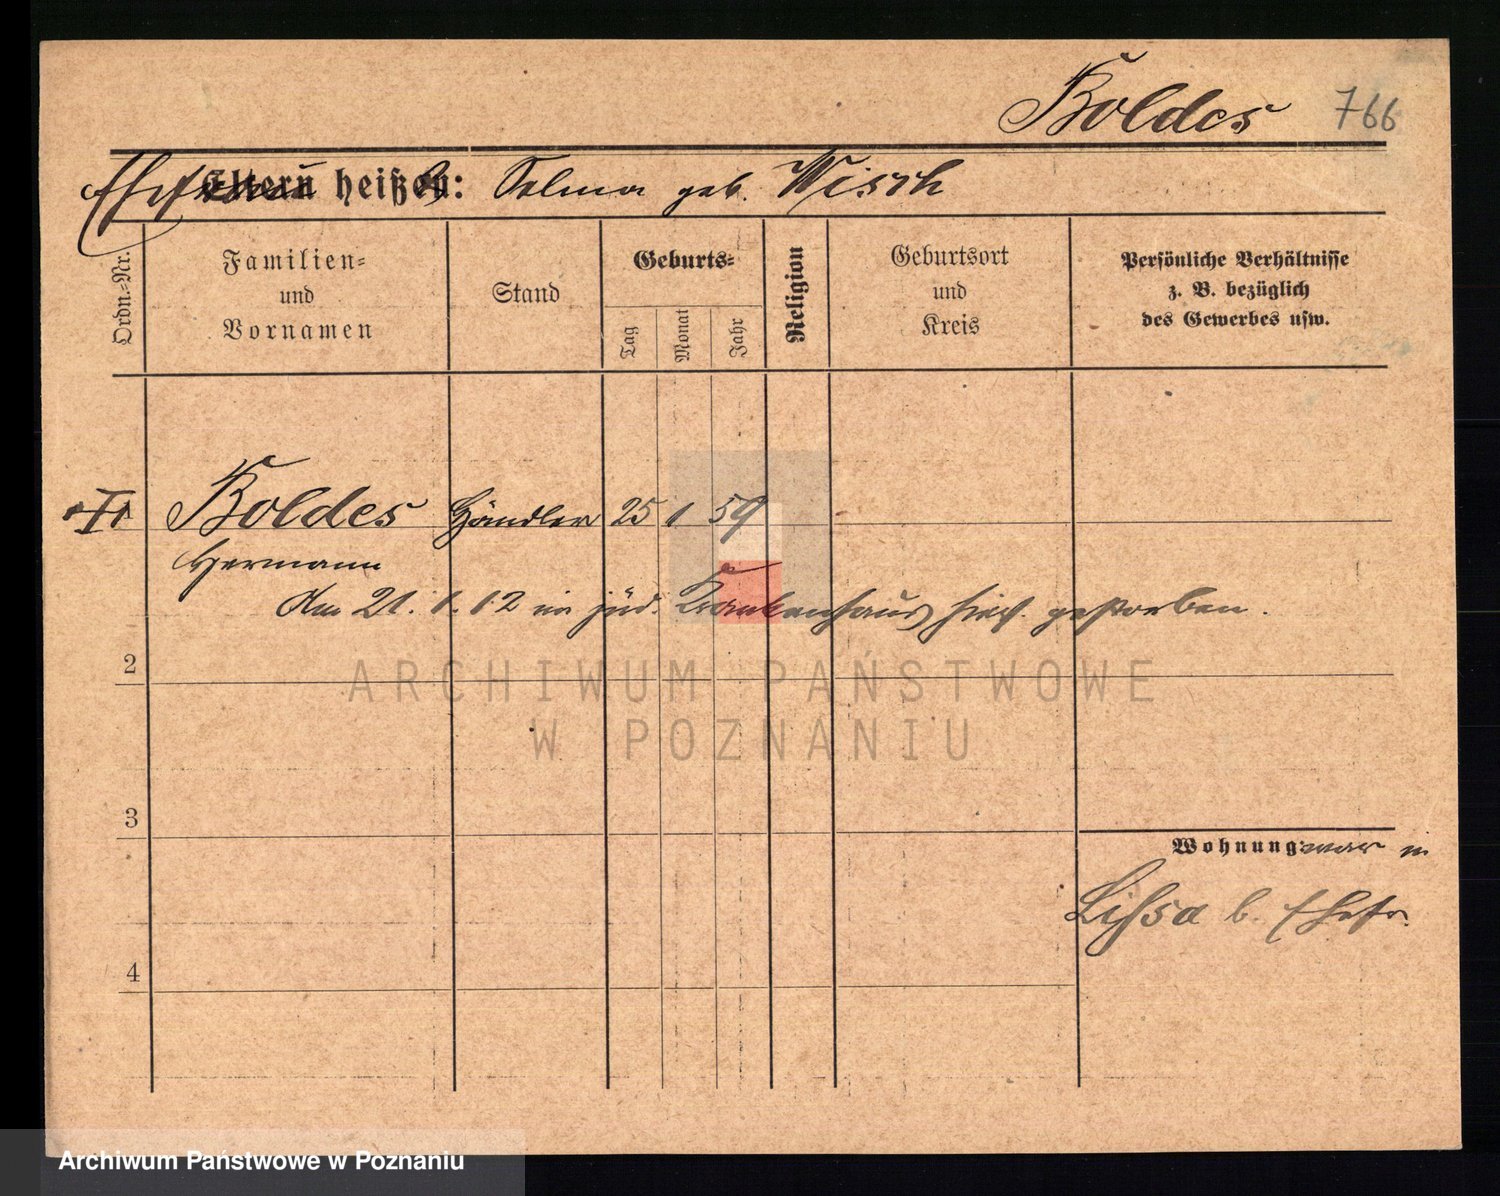 Boldes 766
Ehefrau Eltern heißen: Selma geb. Wisch
Ordn.-Nr.
Familien-
und
Vornamen
Stand
Geburts-
Tag
Monat
Jahr
Religion
Geburtsort
und
Kreis
Persönliche Verhältnisse
z. B. bezüglich
des Gewerbes usw.
Boldes Händler 25 1 59
Hermann
Am 21. 1. 12 im jüd. Krankenhaus hies. gestorben.
2
ARCHIWUM PAŃSTWOWE
W POZNANIU
3
Wohnung: war in
Lissa b. Ehefr.
4
Archiwum Państwowe w Poznaniu